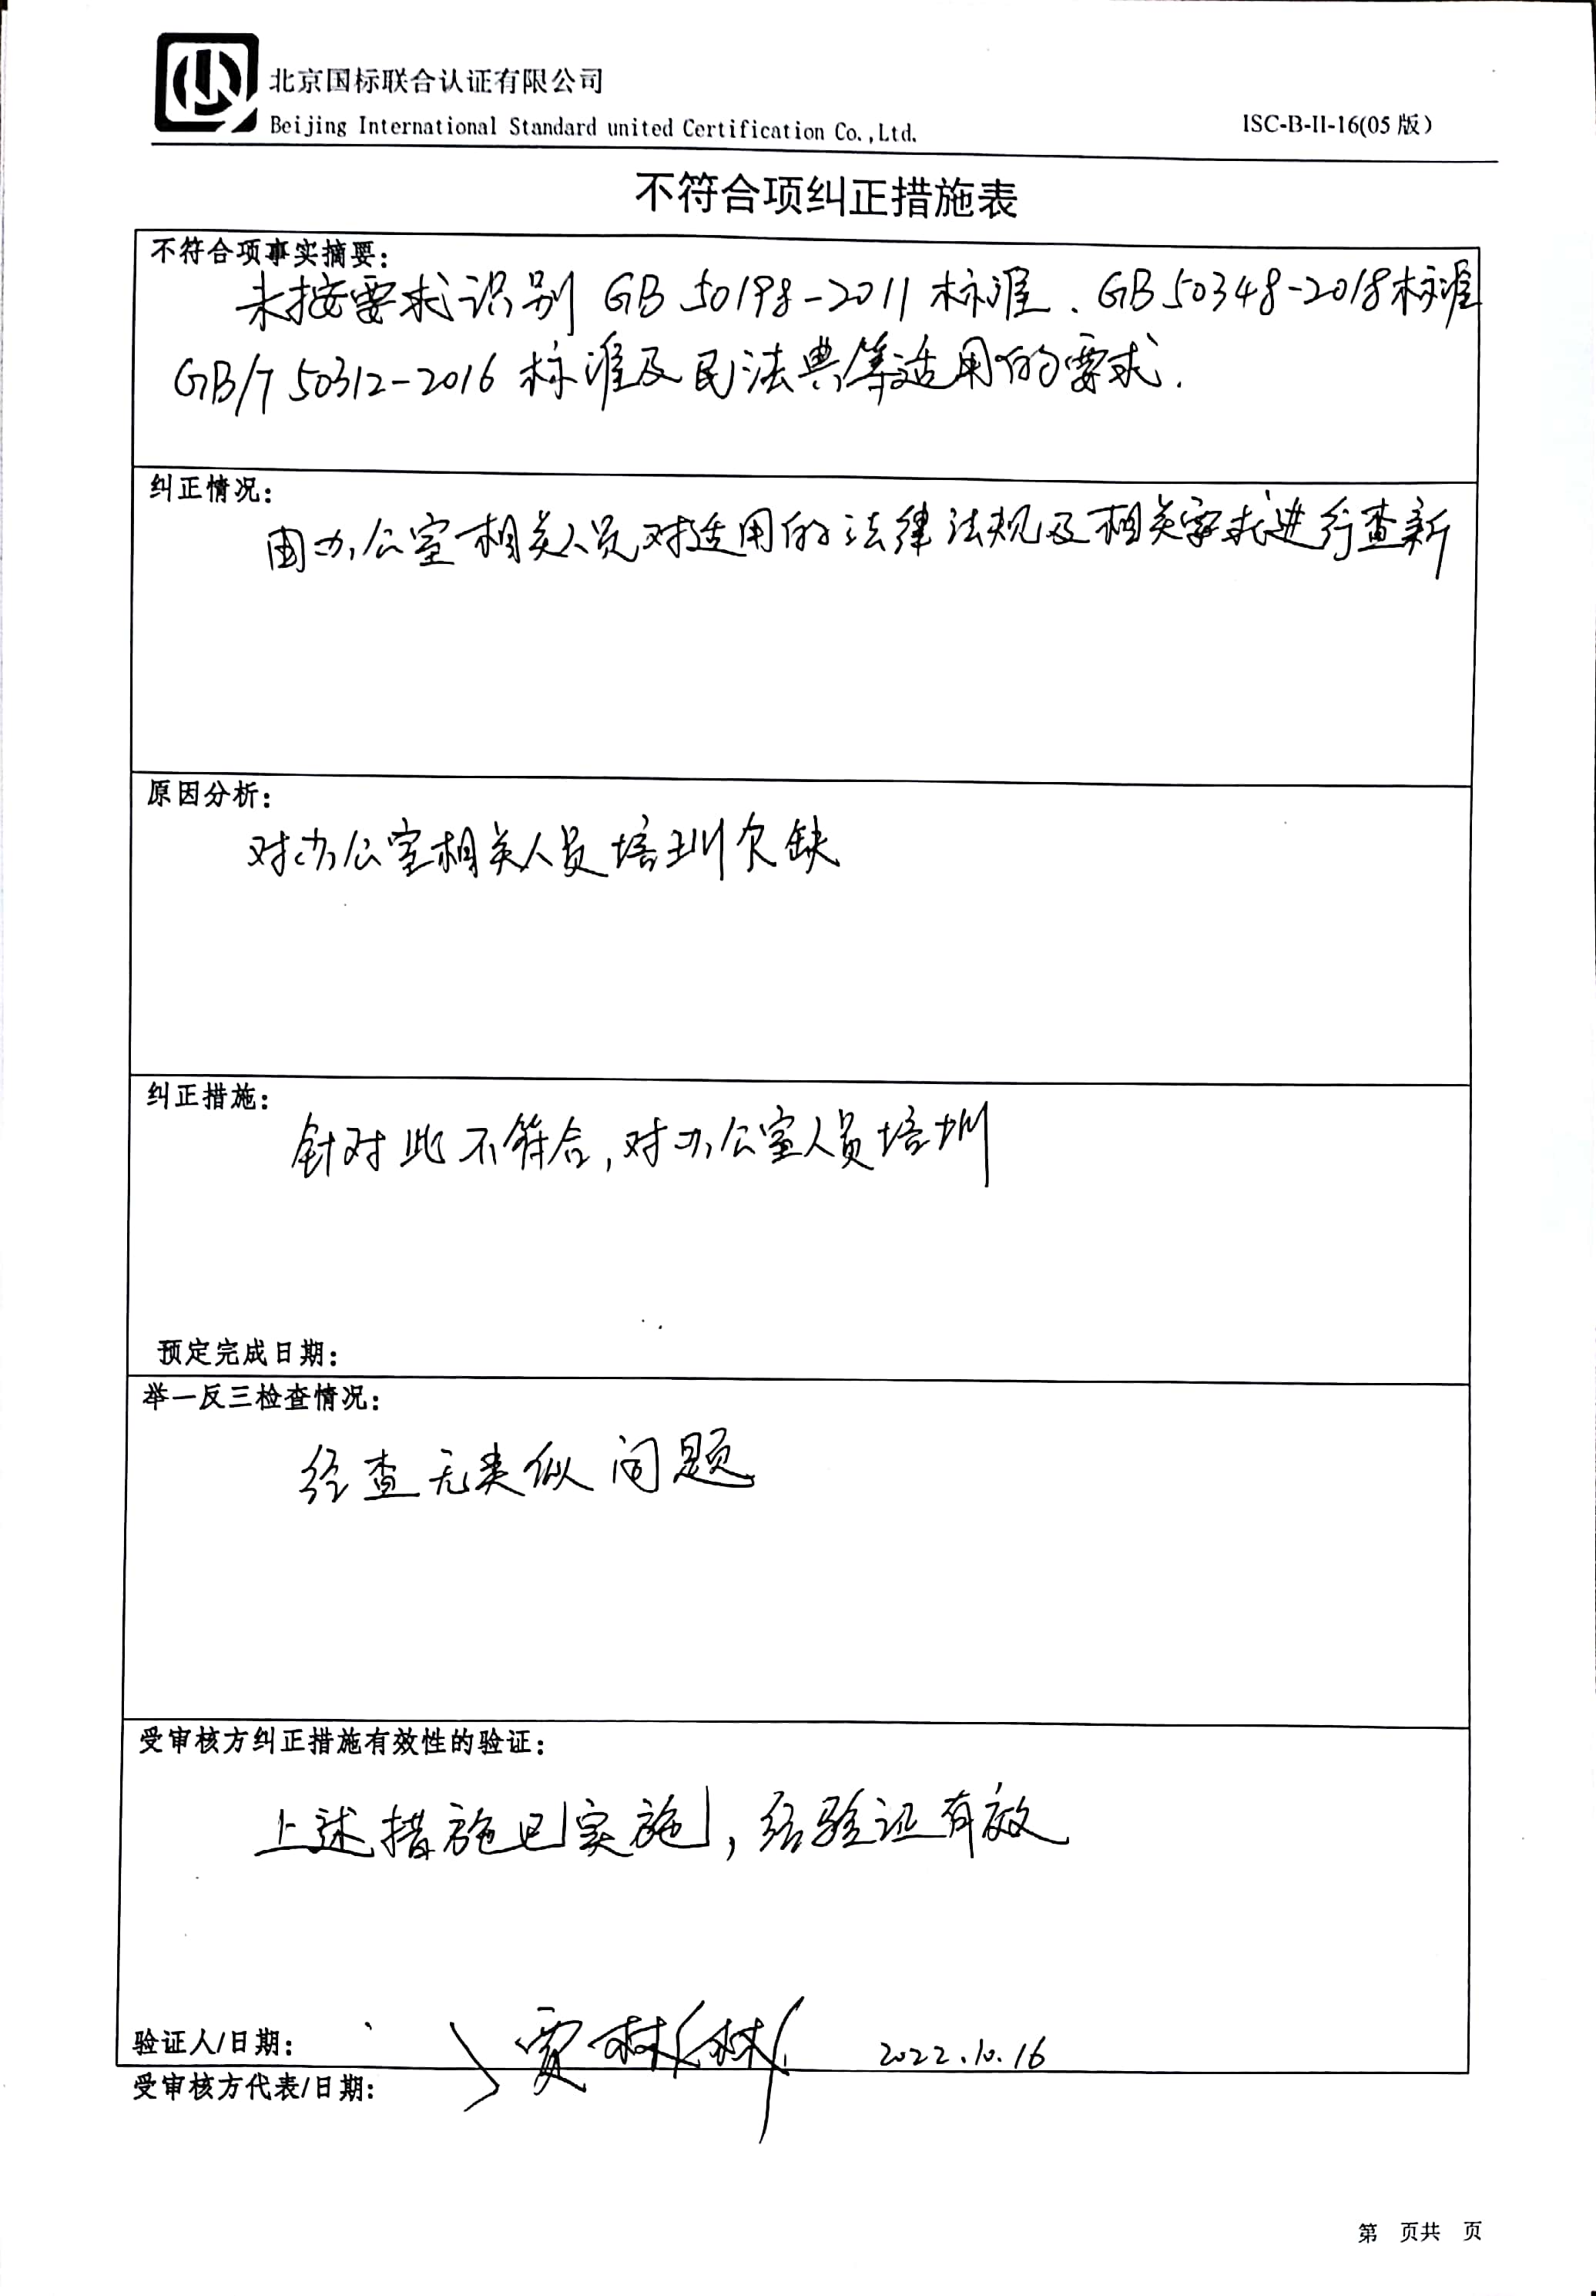 北京国标联合认证有限公司
Beijing International Standard united Certification Co.,Ltd.
ISC-B-II-16(05版)
不符合项纠正措施表
不符合项事实摘要:
未按要求识别 GB 50198-2011 标准、GB 50348-2018标准
GB/T 50312-2016 标准及民法典等适用的要求.
纠正情况:
由办公室相关人员对适用的法律法规及相关要求进行查新
原因分析:
对办公室相关人员培训欠缺
纠正措施:
针对此不符合,对办公室人员培训
预定完成日期:
举一反三检查情况:
经查无类似问题
受审核方纠正措施有效性的验证:
上述措施已实施,经验证有效
验证人/日期:
贾林林 2022.10.16
受审核方代表/日期:
第 页共 页